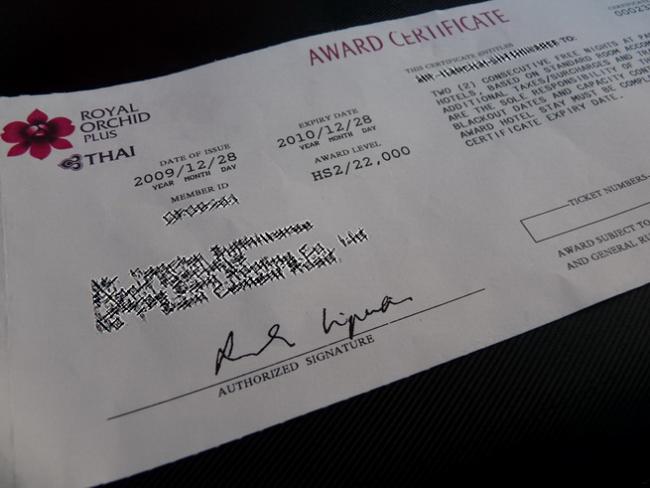 AWARD CERTIFICATE
CERTIFICATE
ROYAL
ORCHID
PLUS
THAI
DATE OF ISSUE
2009/12/28
YEAR MONTH DAY
MEMBER ID
EXPIRY DATE
2010/12/28
YEAR MONTH DAY
AWARD LEVEL
HS2/22,000
THIS CERTIFICATE ENTITLES
TO:
TWO (2) CONSECUTIVE FREE NIGHTS AT
HOTELS, BASED ON STANDARD ROOM
ADDITIONAL TAXES/SURCHARGES AND
ARE THE SOLE RESPONSIBILITY OF
BLACKOUT DATES AND CAPACITY
AWARD HOTEL STAY MUST BE
CERTIFICATE EXPIRY DATE.
TICKET NUMBERS
AWARD SUBJECT TO
AND GENERAL
AUTHORIZED SIGNATURE